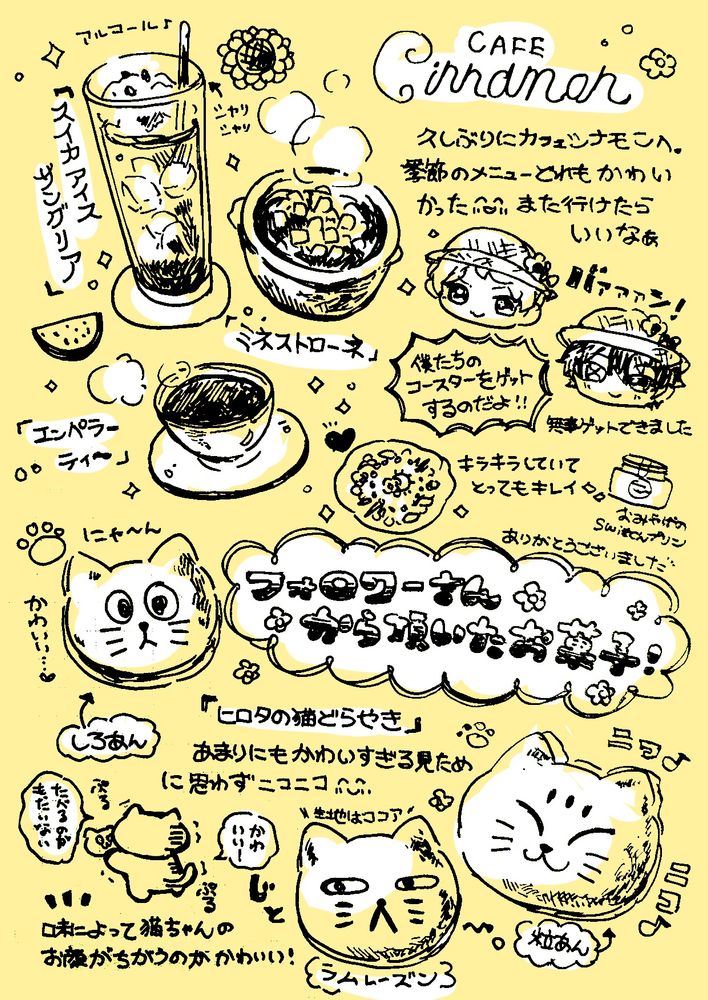 アルコール♪
CAFE
Cinnamon
『スイカアイス
サングリア』
シャリ
シャリ
久しぶりにカフェシナモンへ。
季節のメニューどれもかわい
かった また行けたら
いいなぁ
「ミネストローネ」
バァァァン!
僕たちの
コースターをゲット
するのだよ!!
無事ゲットできました
「エンペラー
ティ〜」
キラキラしていて
とってもキレイ
おみやげの
プリン
ありがとうございました
にゃ〜ん
かわいい…
フォロワーさん
から頂いたお菓子!
しろあん
『ヒロタの猫どらやき』
あまりにもかわいすぎる見ために
に思わずニコニコ
ニコ♪
ニコ♪
たべるのが
もったいない
ぷる
ぷる
かわ
いい…
"生地はココア"
じとっ
味によって猫ちゃんの
お顔がちがうのがかわいい!
ラムレーズン
粒あん